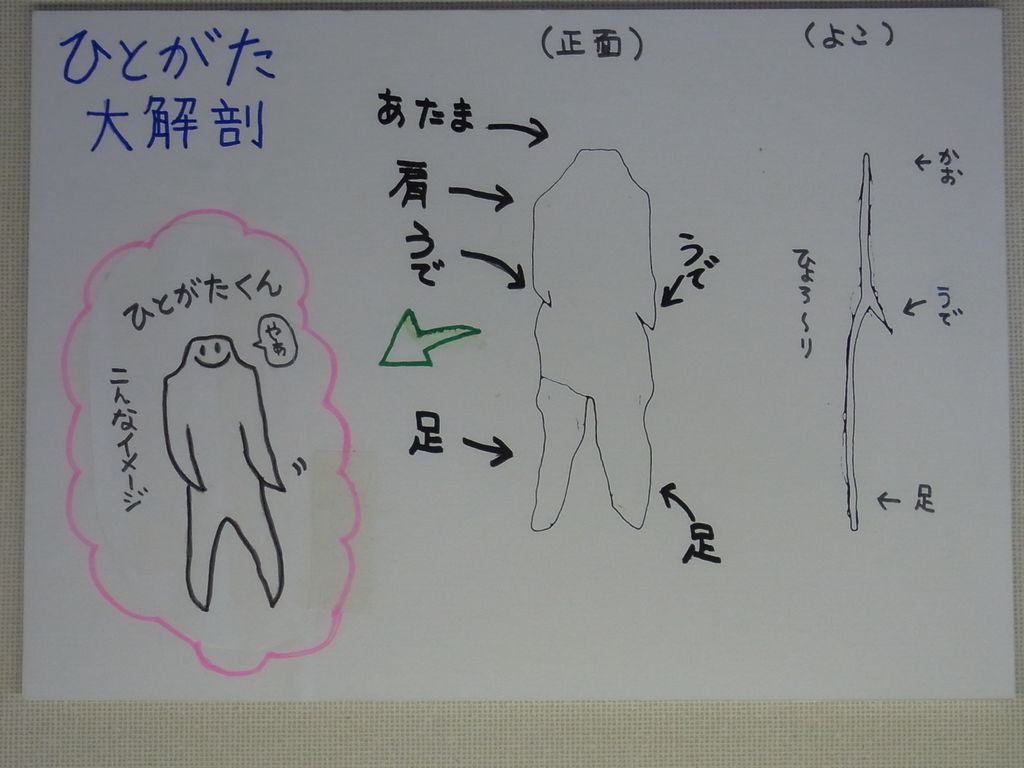 ひとがた
大解剖
(正面)
(よこ)
あたま
肩
うで
うで
足
足
かお
うで
ひょろ〜り
足
ひとがたくん
やあ
こんなイメージ